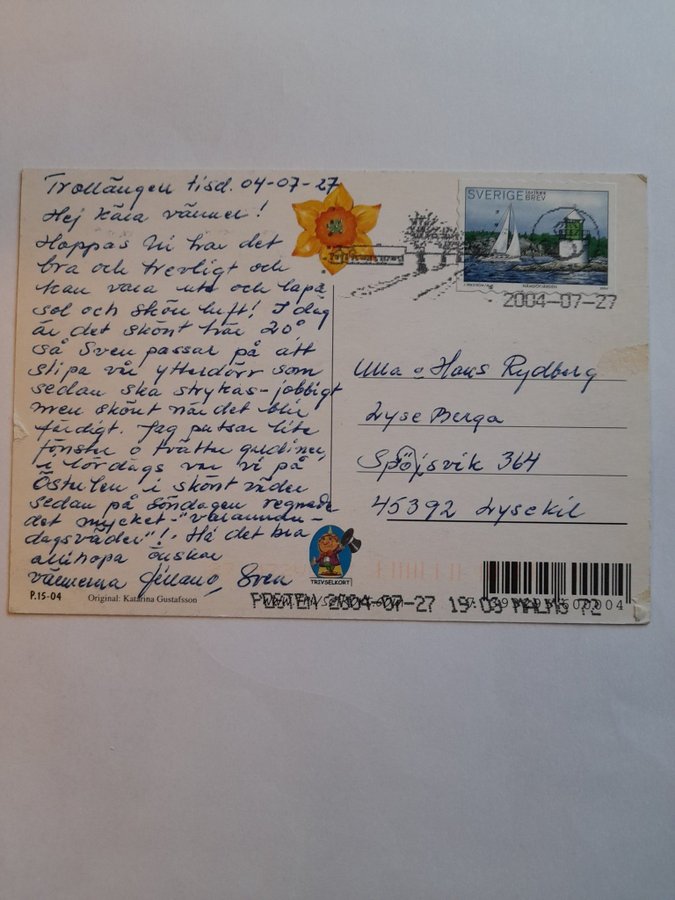 Trollängen tisd. 04-07-27
Hej kära vänner!
Hoppas Ni har det
bra och trevligt och
kan vara ute och lapa
sol och skön luft! I dag
är det skönt här 20°,
så Sven passar på att
slipa vår ytterdörr som
sedan ska strykas - jobbigt
men skönt när det blir
färdigt. Jag putsar lite
fönster o tvättar gardiner,
i lördags var vi på
Österlen i skönt väder
sedan på söndagen regnade
det mycket - "varannan-
dagsväder"! Ha det bra
allihopa önskar
vännerna Sven
P.15-04
Original: Katarina Gustafsson
TRIVSELKORT
SVERIGE
BREV
2004-07-27
Ulla o Hans Rydberg
Lyse Berga
Spöjsvik 364
45392 Lysekil
POSTEN 2004-07-27 19:03 MALMÖ 72